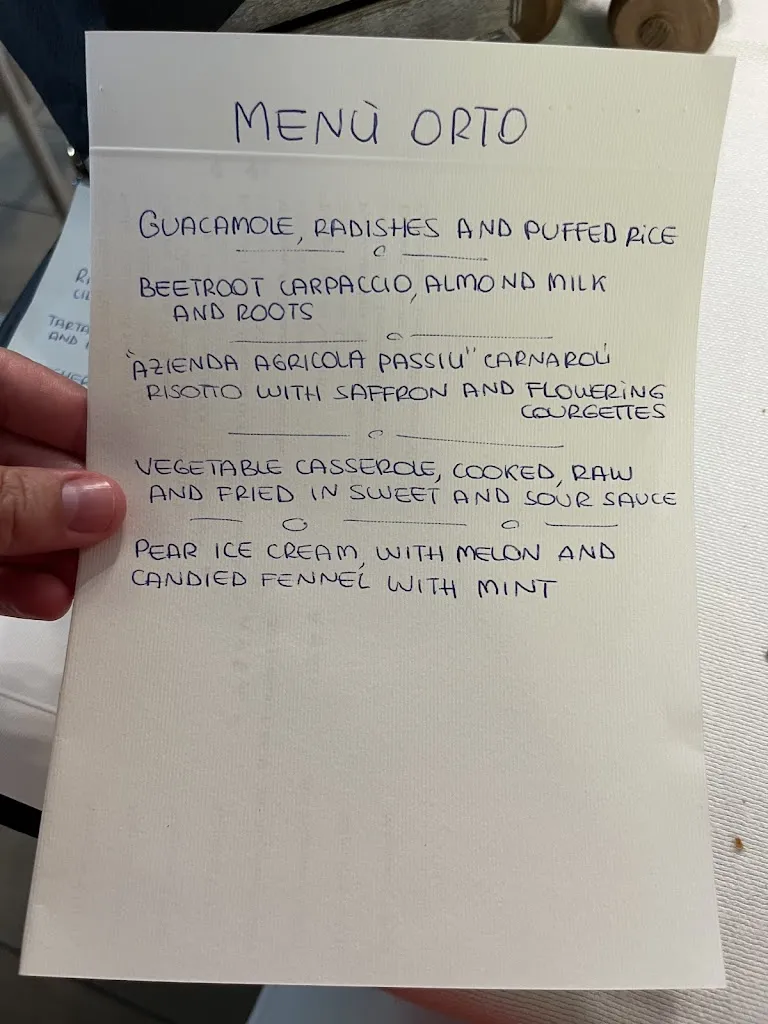 MENÙ ORTO
GUACAMOLE, RADISHES AND PUFFED RICE
BEETROOT CARPACCIO, ALMOND MILK
AND ROOTS
"AZIENDA AGRICOLA PASSIU" CARNAROLI
RISOTTO WITH SAFFRON AND FLOWERING
COURGETTES
VEGETABLE CASSEROLE, COOKED, RAW
AND FRIED IN SWEET AND SOUR SAUCE
PEAR ICE CREAM, WITH MELON AND
CANDIED FENNEL WITH MINT